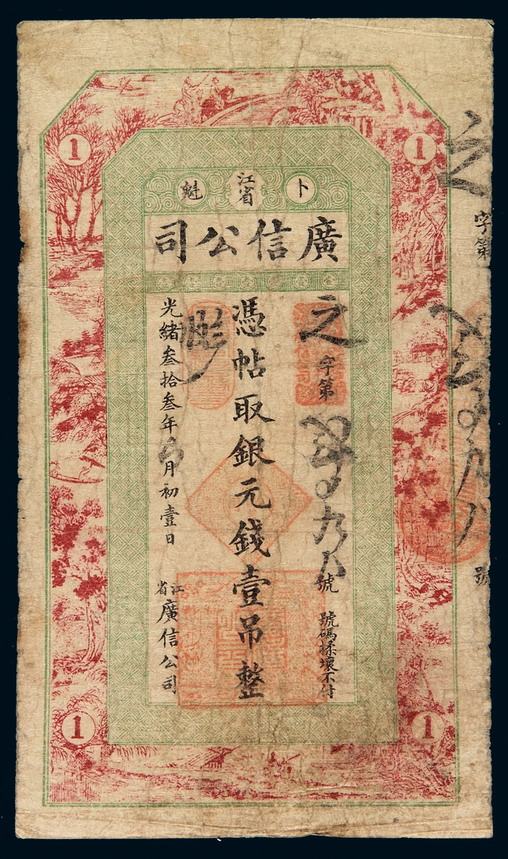 1
1
卜 江省 魁
廣信公司
之字第
九八號
號碼揉壞不付
憑帖取銀元錢壹吊整
光緒叁拾叁年
月初壹日
江省廣信公司
1
1
之字第
九八
號